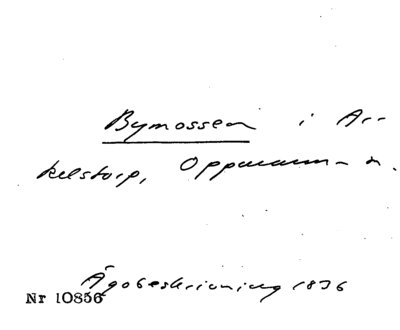 Bymossen i Ar-
kelstorp, Oppmanna n.
Ägobeskrivning 1836
Nr 10856